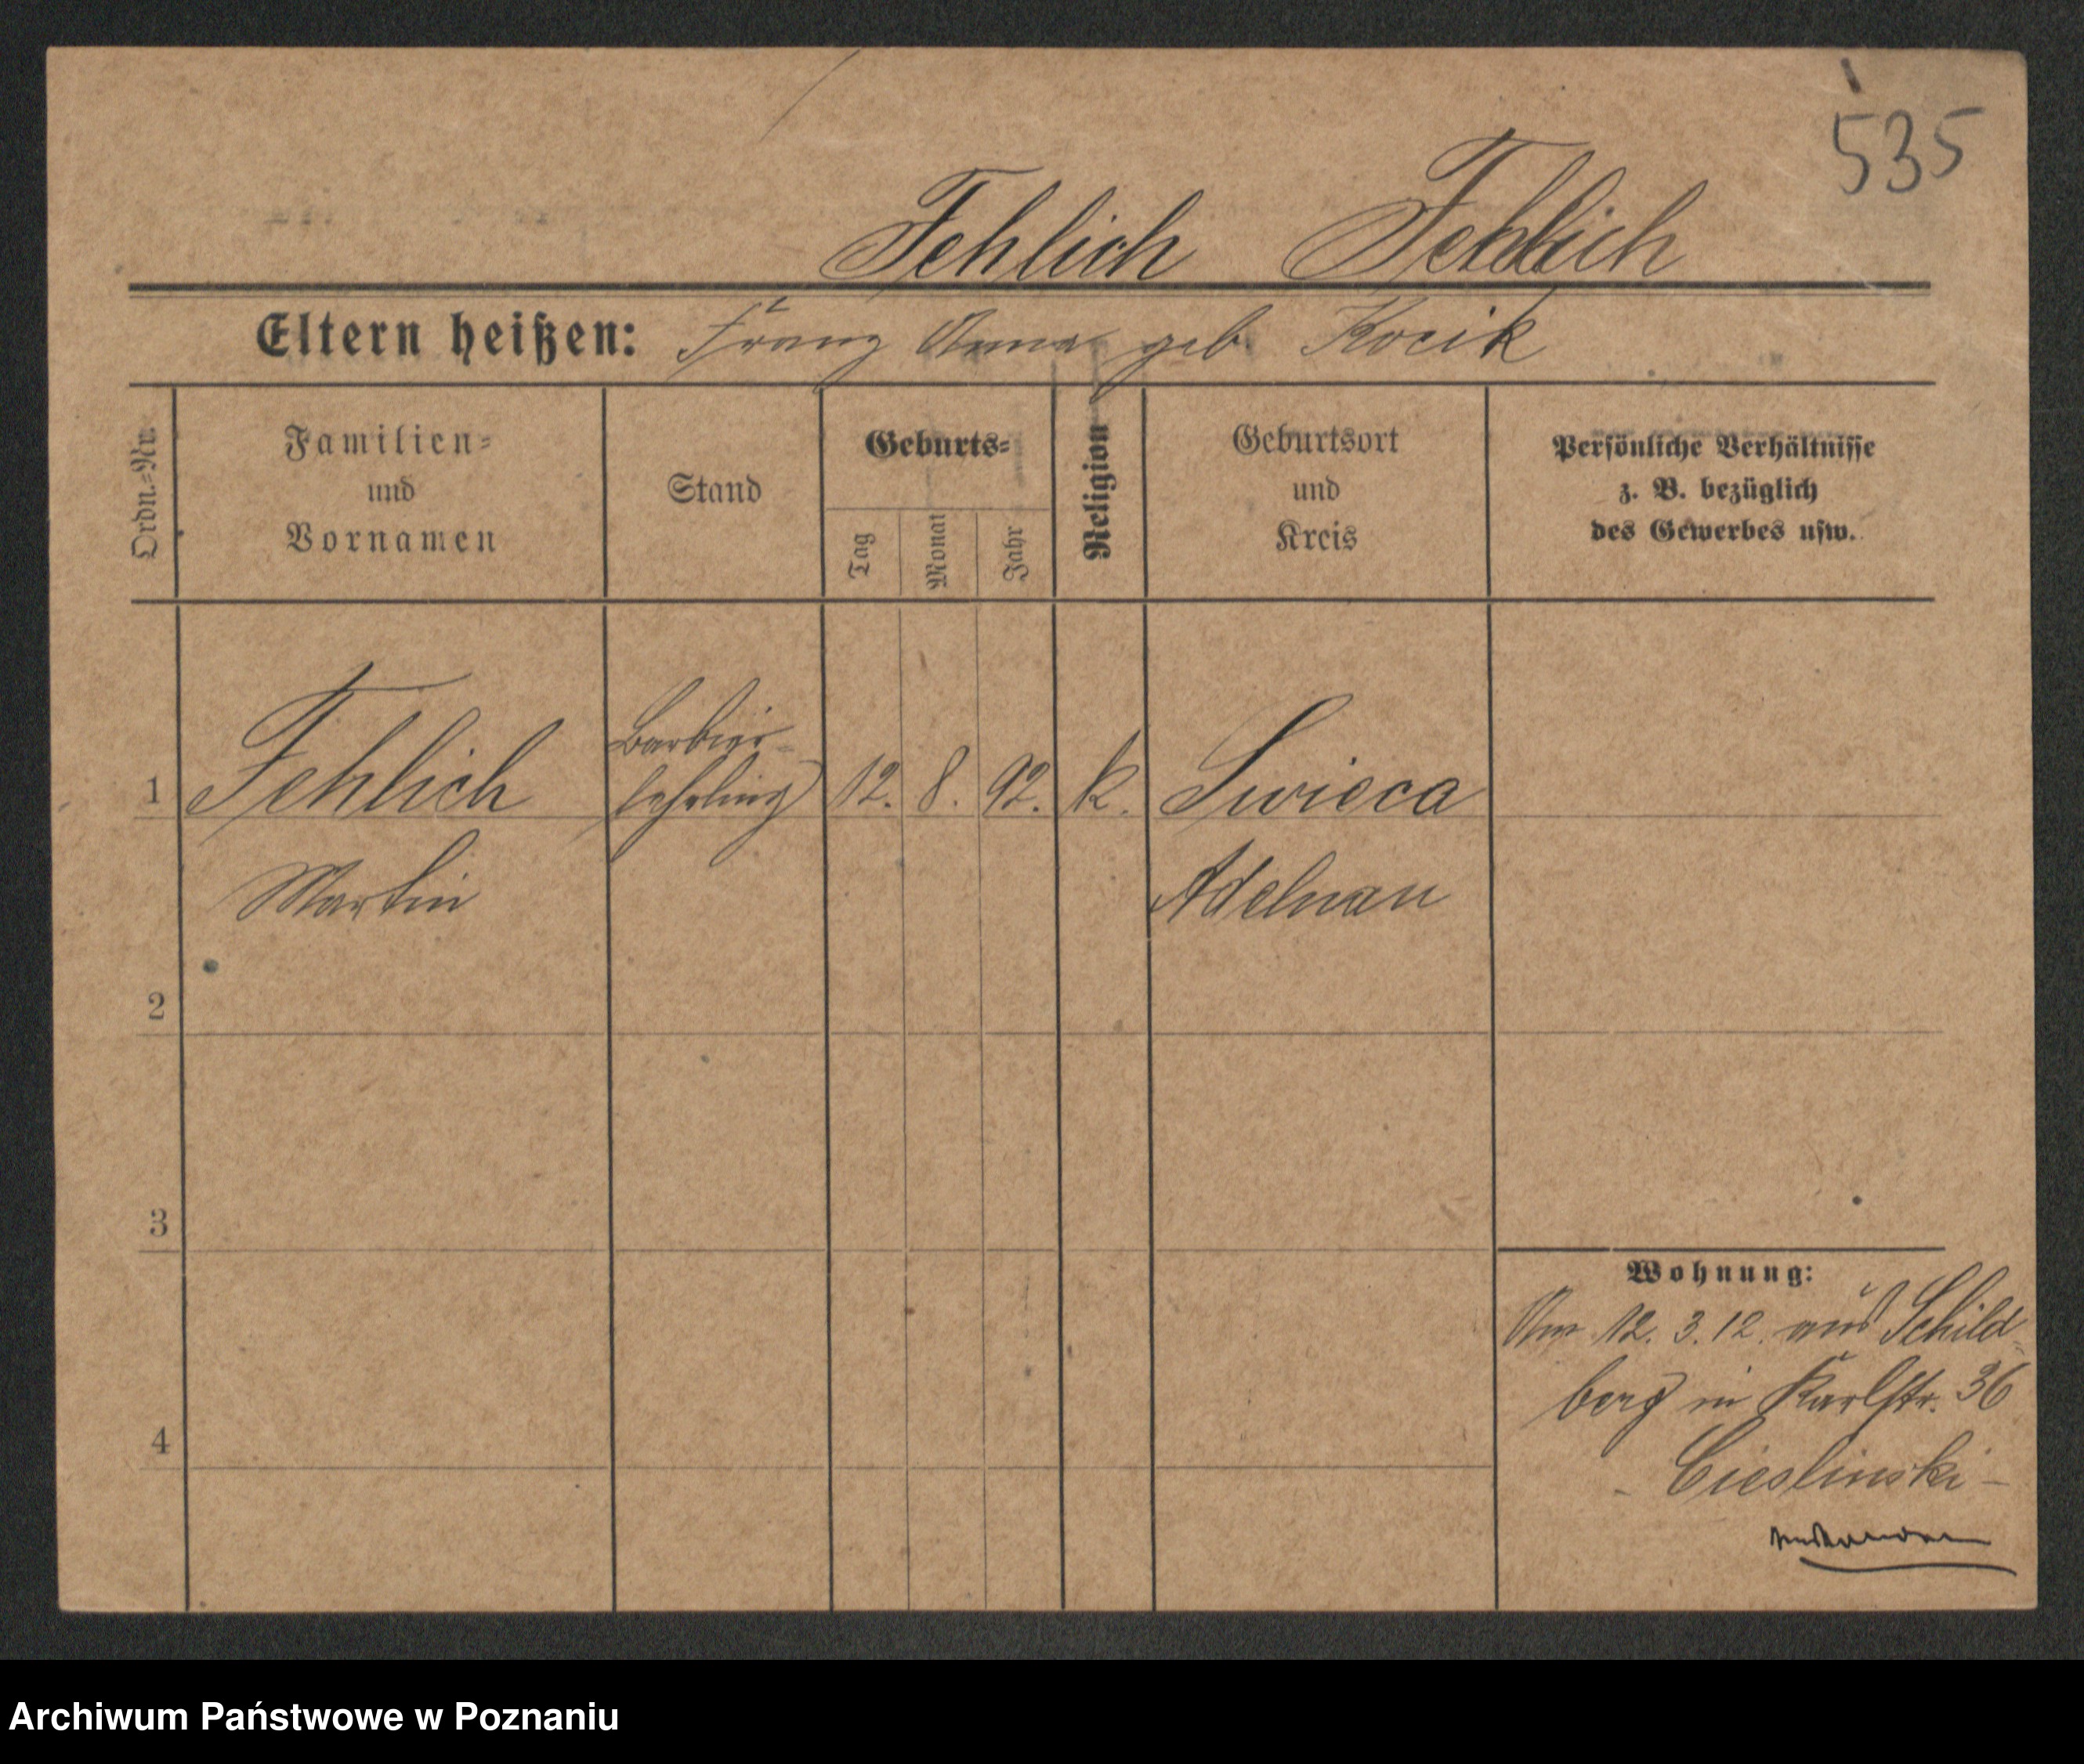 535
Fehlich Fehlich
Eltern heißen: Franz Anna geb Kocik
Ordn.-Nr.
Familien-
und
Vornamen
Stand
Geburts-
Tag
Monat
Jahr
Religion
Geburtsort
und
Kreis
Persönliche Verhältnisse
z. B. bezüglich
des Gewerbes usw.
Barbier-
1 Fehlich lehrling 12. 8. 92. k. Swieca
Martin Adelnau
2
3
Wohnung:
Am 12. 3. 12. aus Schild-
berg in Karlstr. 36
4
- Cieslinski -
Archiwum Państwowe w Poznaniu